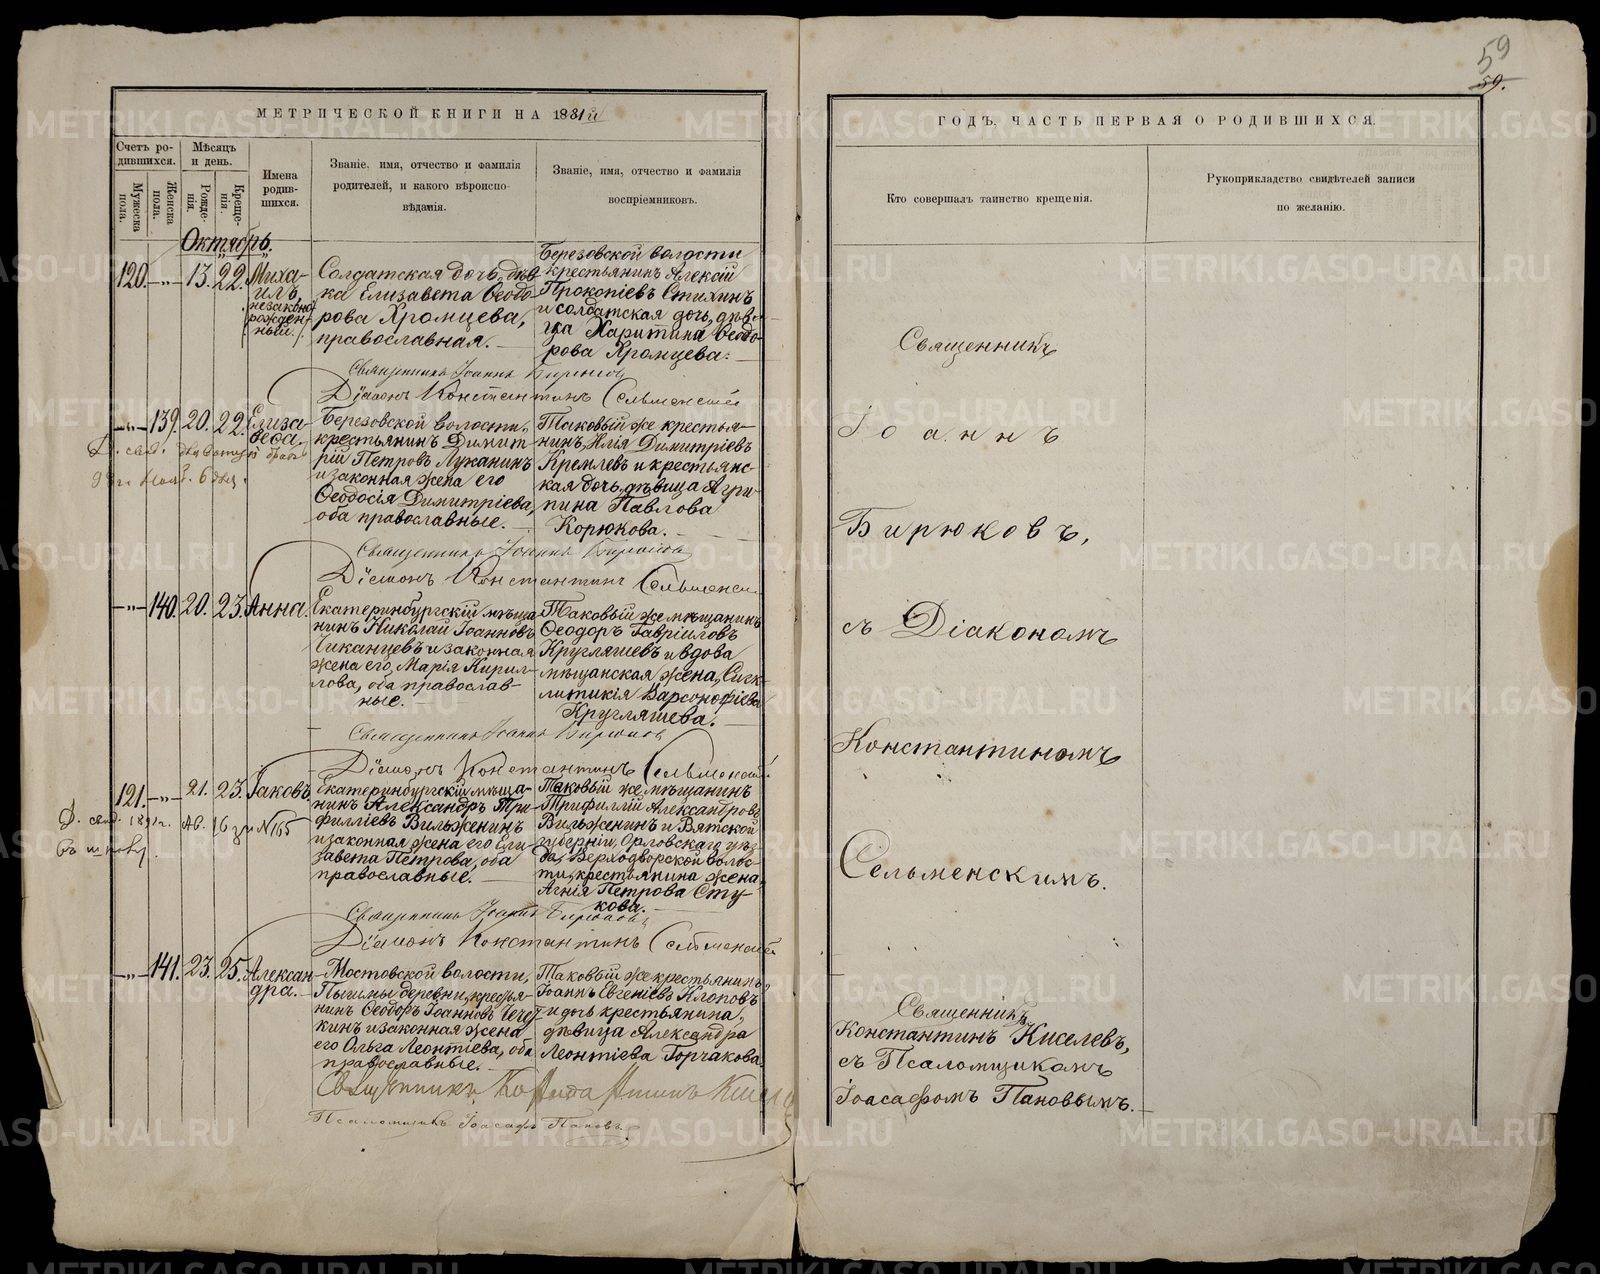 59
59.
МЕТРИЧЕСКОЙ КНИГИ НА 1881й
Счетъ ро-
дившихся.
Мужеска
пола.
Женска
пола.
Мѣсяцъ
и день.
Рожде-
нія.
Креще-
нія.
Имена
родив-
шихся.
Званіе, имя, отчество и фамилія
родителей, и какого вѣроиспо-
вѣданія.
Званіе, имя, отчество и фамилія
воспріемниковъ.
Октябрь.
120. 13. 22.
Миха-
илъ,
незаконо
рожден-
ный.
Солдатская дочь, дѣв-
ка Елизавета Ѳеодо-
рова Хромцева,
православная.
Березовской волости
крестьянинъ Алексій
Прокопіевъ Стихинъ
и солдатская дочь, дѣви-
ца Харитина Ѳеодо-
рова Хромцева.
Священникъ Іоаннъ Бирюковъ
Діаконъ Константинъ Сельменскій
139. 20. 22.
Елиза-
вета.
Березовской волости,
крестьянинъ Димит-
рій Петровъ Лужанинъ
и законная жена его
Ѳеодосія Димитріева,
оба православные.
Таковый же крестья-
нинъ, Илія Димитріевъ
Кремлевъ и крестьянс-
кая дочь, дѣвица Агри-
пина Павлова
Корюкова.
Священникъ Іоаннъ Бирюковъ
Діаконъ Константинъ Сельменскій
140. 20. 23. Анна.
Екатеринбургскій мѣща-
нинъ Николай Іоанновъ
Чиканцевъ и законная
жена его, Марія Кирил-
лова, оба православ-
ные.
Таковый же мѣщанинъ
Ѳеодоръ Гавріиловъ
Кругляшевъ и вдова
мѣщанская жена, Синк-
литикія Варсонофіева
Кругляшева.
Священникъ Іоаннъ Бирюковъ
Діаконъ Константинъ Сельменскій
121. 21. 23. Іаковъ.
Д. свид. 1891г. Ав. 16 за №165
Екатеринбургскій мѣща-
нинъ Александръ Три-
филліевъ Вильженинъ
и законная жена его Ели-
завета Петрова, оба
православные.
Таковый же мѣщанинъ
Трифиллій Александровъ
Вильженинъ и Вятской
губерніи, Орловскаго уѣз-
да, Верходворской волос-
ти, крестьянина жена,
Агнія Петрова Сту-
кова.
Священникъ Іоаннъ Бирюковъ
Діаконъ Константинъ Сельменскій
141. 23. 25.
Алексан-
дра.
Мостовской волости,
деревни, крестья-
нинъ Ѳеодоръ Іоанновъ
и законная жена
его Ольга Леонтіева, оба
православные.
Таковый же крестьянинъ,
Іоаннъ Евгеніевъ Клоповъ
и дочь крестьянина,
дѣвица Александра
Леонтіева Горчакова.
Священникъ
Псаломщикъ Іоасафъ Пановъ
ГОДЪ, ЧАСТЬ ПЕРВАЯ О РОДИВШИХСЯ.
Кто совершалъ таинство крещенія.
Рукоприкладство свидѣтелей записи
по желанію.
Священникъ
Іоаннъ
Бирюковъ,
съ Діакономъ
Константиномъ
Сельменскимъ.
Священникъ
Константинъ Киселевъ,
съ Псаломщикомъ
Іоасафомъ Пановымъ.
METRIKI.GASO-URAL.RU